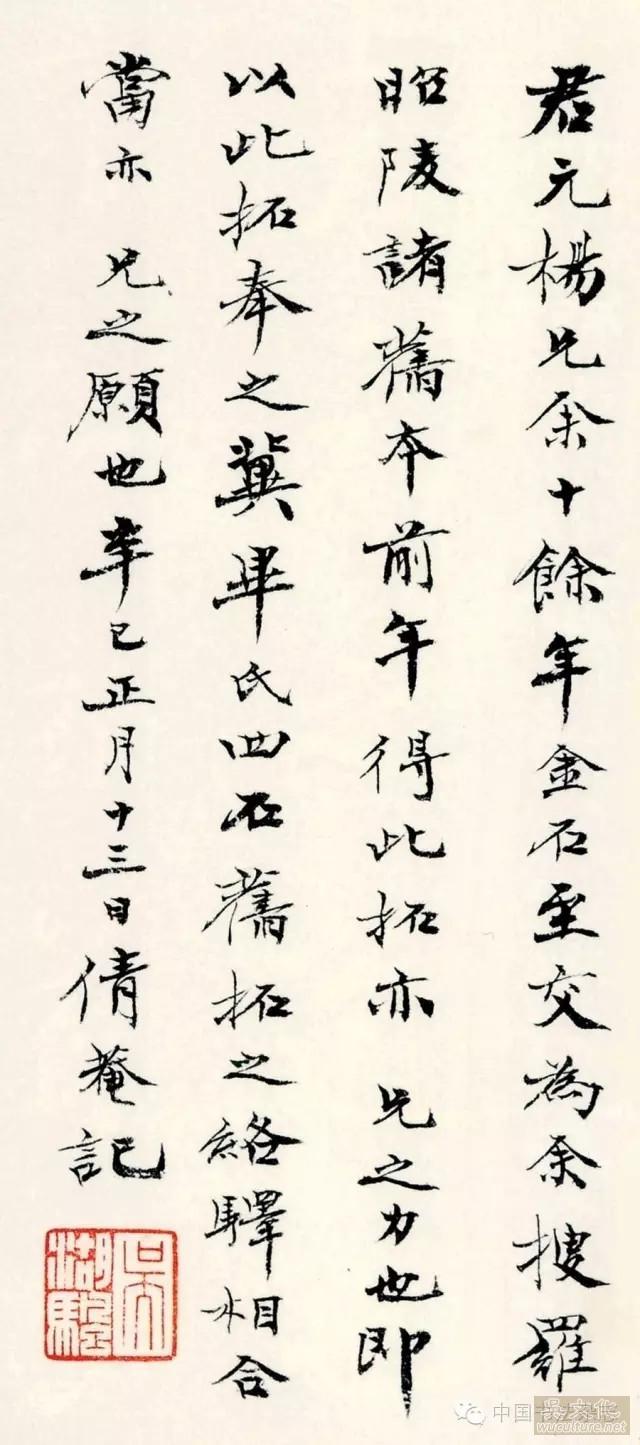 君元楊兄余十餘年金石至交為余搜羅
昭陵諸舊本前年得此拓亦 兄之力也即
以此拓奉之冀畢氏四石舊拓之絡驛相合
當亦 兄之願也辛巳正月十三日倩菴記
吳湖驄
中国书法
吴文化
www.wuculture.net